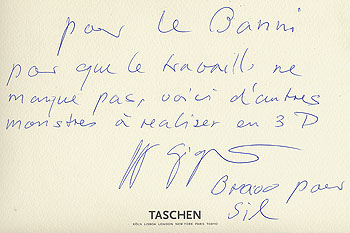 pour le Banni
pour que le travail ne
manque pas, voici d'autres
monstres à réaliser en 3D
Bravo pour
Sil
TASCHEN
KÖLN LISBOA LONDON NEW YORK PARIS TOKYO